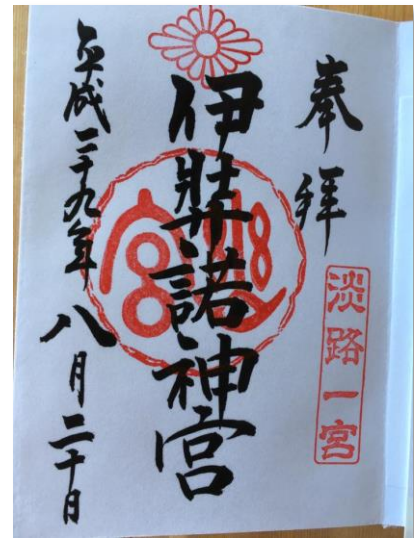 奉拝
淡路一宮
伊弉諾神宮
平成二十九年
八月二十日